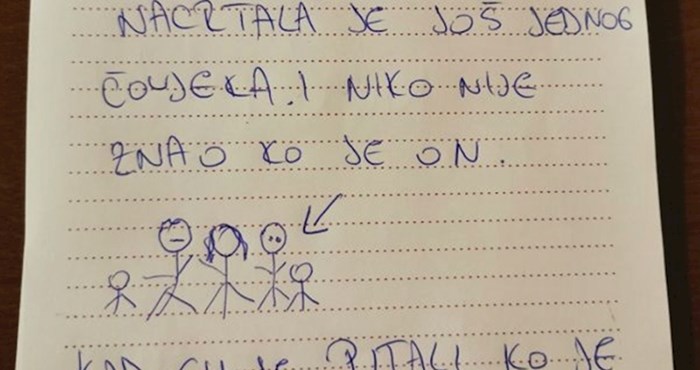 NACRTALA JE JOŠ JEDNOG
ČOVJEKA. I NIKO NIJE
ZNAO KO JE ON.
KAD SU JE PITALI KO JE